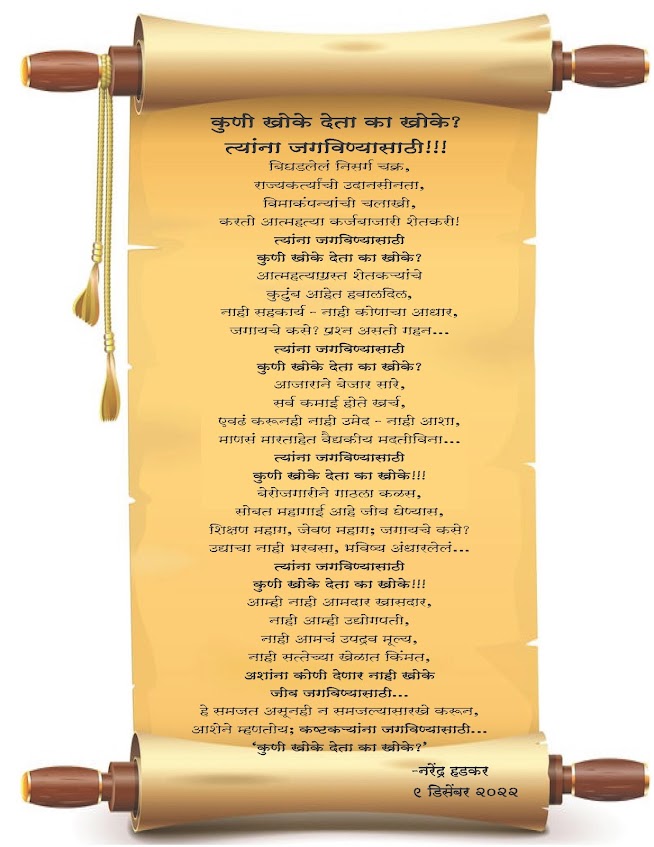 कुणी खोके देता का खोके?
त्यांना जगविण्यासाठी!!!
बिघडलेलं निसर्ग चक्र,
राज्यकर्त्यांची उदानसीनता,
विमाकंपन्यांची चलाखी,
करतो आत्महत्या कर्जबाजारी शेतकरी!
त्यांना जगविण्यासाठी
कुणी खोके देता का खोके?
आत्महत्याग्रस्त शेतकऱ्यांचे
कुटुंब आहेत हवालदिल,
नाही सहकार्य - नाही कोणाचा आधार,
जगायचे कसे? प्रश्न असतो गहन...
त्यांना जगविण्यासाठी
कुणी खोके देता का खोके?
आजाराने बेजार सारे,
सर्व कमाई होते खर्च,
एवढं करूनही नाही उमेद - नाही आशा,
माणसं मारताहेत वैद्यकीय मदतीविना...
त्यांना जगविण्यासाठी
कुणी खोके देता का खोके!!!
बेरोजगारीने गाठला कळस,
सोबत महागाई आहे जीव घेण्यास,
शिक्षण महाग, जेवण महाग; जगायचे कसे?
उद्याचा नाही भरवसा, भविष्य अंधारलेलं...
त्यांना जगविण्यासाठी
कुणी खोके देता का खोके!!!
आम्ही नाही आमदार खासदार,
नाही आम्ही उद्योगपती,
नाही आमचं उपद्रव मूल्य,
नाही सत्तेच्या खेळात किंमत,
अशांना कोणी देणार नाही खोके
जीव जगविण्यासाठी...
हे समजत असूनही न समजल्यासारखे करून,
आशेने म्हणतोय; कष्टकऱ्यांना जगविण्यासाठी...
‘कुणी खोके देता का खोके?’
-नरेंद्र हडकर
९ डिसेंबर २०२२